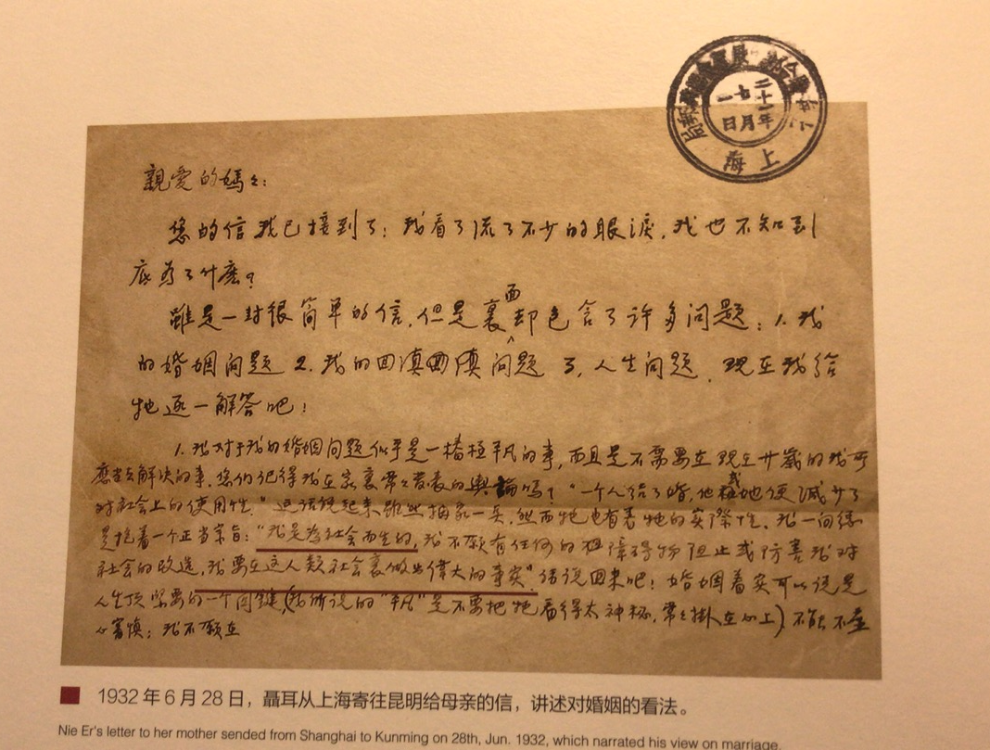 二十一年
七月
一日
上海
親愛的媽々：
您的信我已接到了；我看了流了不少的眼淚，我也不知到
底為了什麽？
雖是一封很简單的信，但是裏面却包含了许多问题：1. 我
的婚姻问题 2. 我的回滇问题 3. 人生问题．现在我给
牠逐一解答吧！
1. 我对于我的婚姻问题似乎是一椿極平凡的事，而且是不需要在现在廿歲的我所
解决的事，您们记得我在家裏常々發表的輿論吗？“一个人结了婚，他或她便減少了
对社会上的使用性。”这话说起来雖然抽象一点，然而牠也有着牠的实際性．我一向總
是抱着一个正当宗旨：“我是為社会而生的，我不願有任何的障碍物阻止或妨害我对
社会的改造，我要在这人類社会裏做出偉大的事实”．话说回来吧！婚姻着实可以说是
人生頂緊要的一个问键，（我所说的“平凡”是不要把牠看得太神秘，常々掛在心上）不能不
審慎；我不願在
1932年6月28日，聶耳从上海寄往昆明给母亲的信，讲述对婚姻的看法。
Nie Er's letter to her mother sended from Shanghai to Kunming on 28th, Jun. 1932, which narrated his view on marriage.